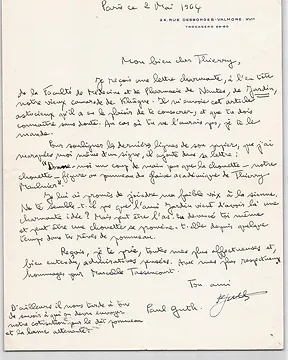 Paris ce 2 Mai 1964
24, RUE DESBORDES-VALMORE, XVIe
TROCADERO
Mon bien cher Thierry,
Je reçois une lettre charmante, à l'en tête
de la Faculté de Médecine et de Pharmacie de Nantes, de Jardin,
notre vieux camarade de Khâgne. Il m'envoie cet article
astucieux qu'il a eu le plaisir de te consacrer, et que tu dois
connaître sans doute. Au cas où tu ne l'aurais pas, je te le
mande.
Pour souligner les dernières lignes de son papier, que j'ai
marquées moi même d'un signe, il ajoute dans sa lettre :
"Donne-moi un coup de main pour que la chouette - notre
chouette - figure au pommeau du glaive académique de Thierry
Maulnier".
Je lui ai promis de joindre ma faible voix à la sienne.
Ne te semble-t-il pas que l'ami Jardin vient d'avoir là une
charmante idée ? Mais peut être l'as-tu devancé toi même
et peut être une chouette se promène-t-elle depuis quelque
temps dans tes rêves de pommeau.
Reçois, je te prie, toutes mes plus affectueuses et,
bien entendu, admiratives pensées. Avec mes plus respectueux
hommages pour Marcelle Tassencourt.
Ton ami
Paul Guth.
D'ailleurs il nous tarde à tous
de savoir à qui on devra envoyer
notre cotisation pour le dit pommeau
et la lame attenante.